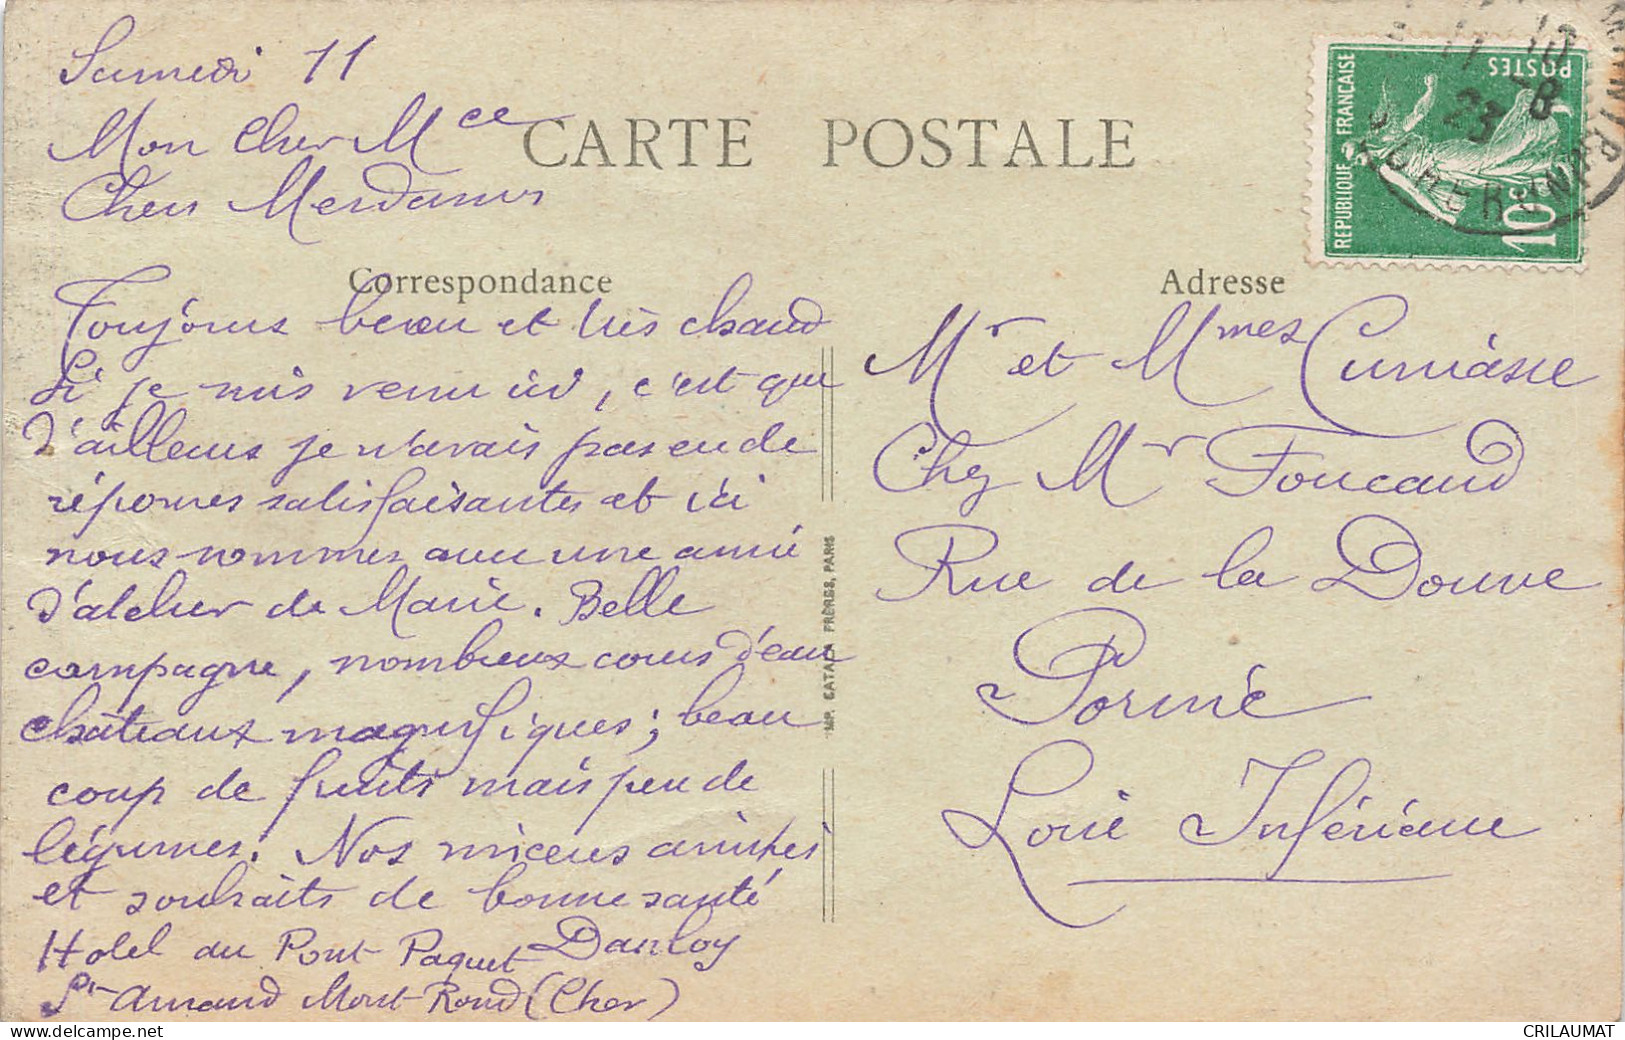 Samedi 11
Mon Cher Mce
Chers Mesdames
CARTE POSTALE
Correspondance
Toujours beau et très chaud
Si je suis venu ici, c'est que
d'ailleurs je n'avais pas eu de
réponses satisfaisantes et ici
nous sommes avec une amie
d'atelier de Marie. Belle
campagne, nombreux cours d'eau
châteaux magnifiques; beau
coup de fruits mais peu de
légumes. Nos sincères amitiés
et souhaits de bonne santé
Danloy
Hotel du Pont Paquet
St Amand Mont-Rond (Cher)
IMP. CATALA FRÈRES, PARIS
Adresse
Mr et Mmes Cumiasse
Chez Mr Foucaud
Rue de la Douve
Pornic
Loire Inférieure
REPUBLIQUE FRANÇAISE
POSTES
10c
11 -8
23
CRILAUMAT
delcampe.net